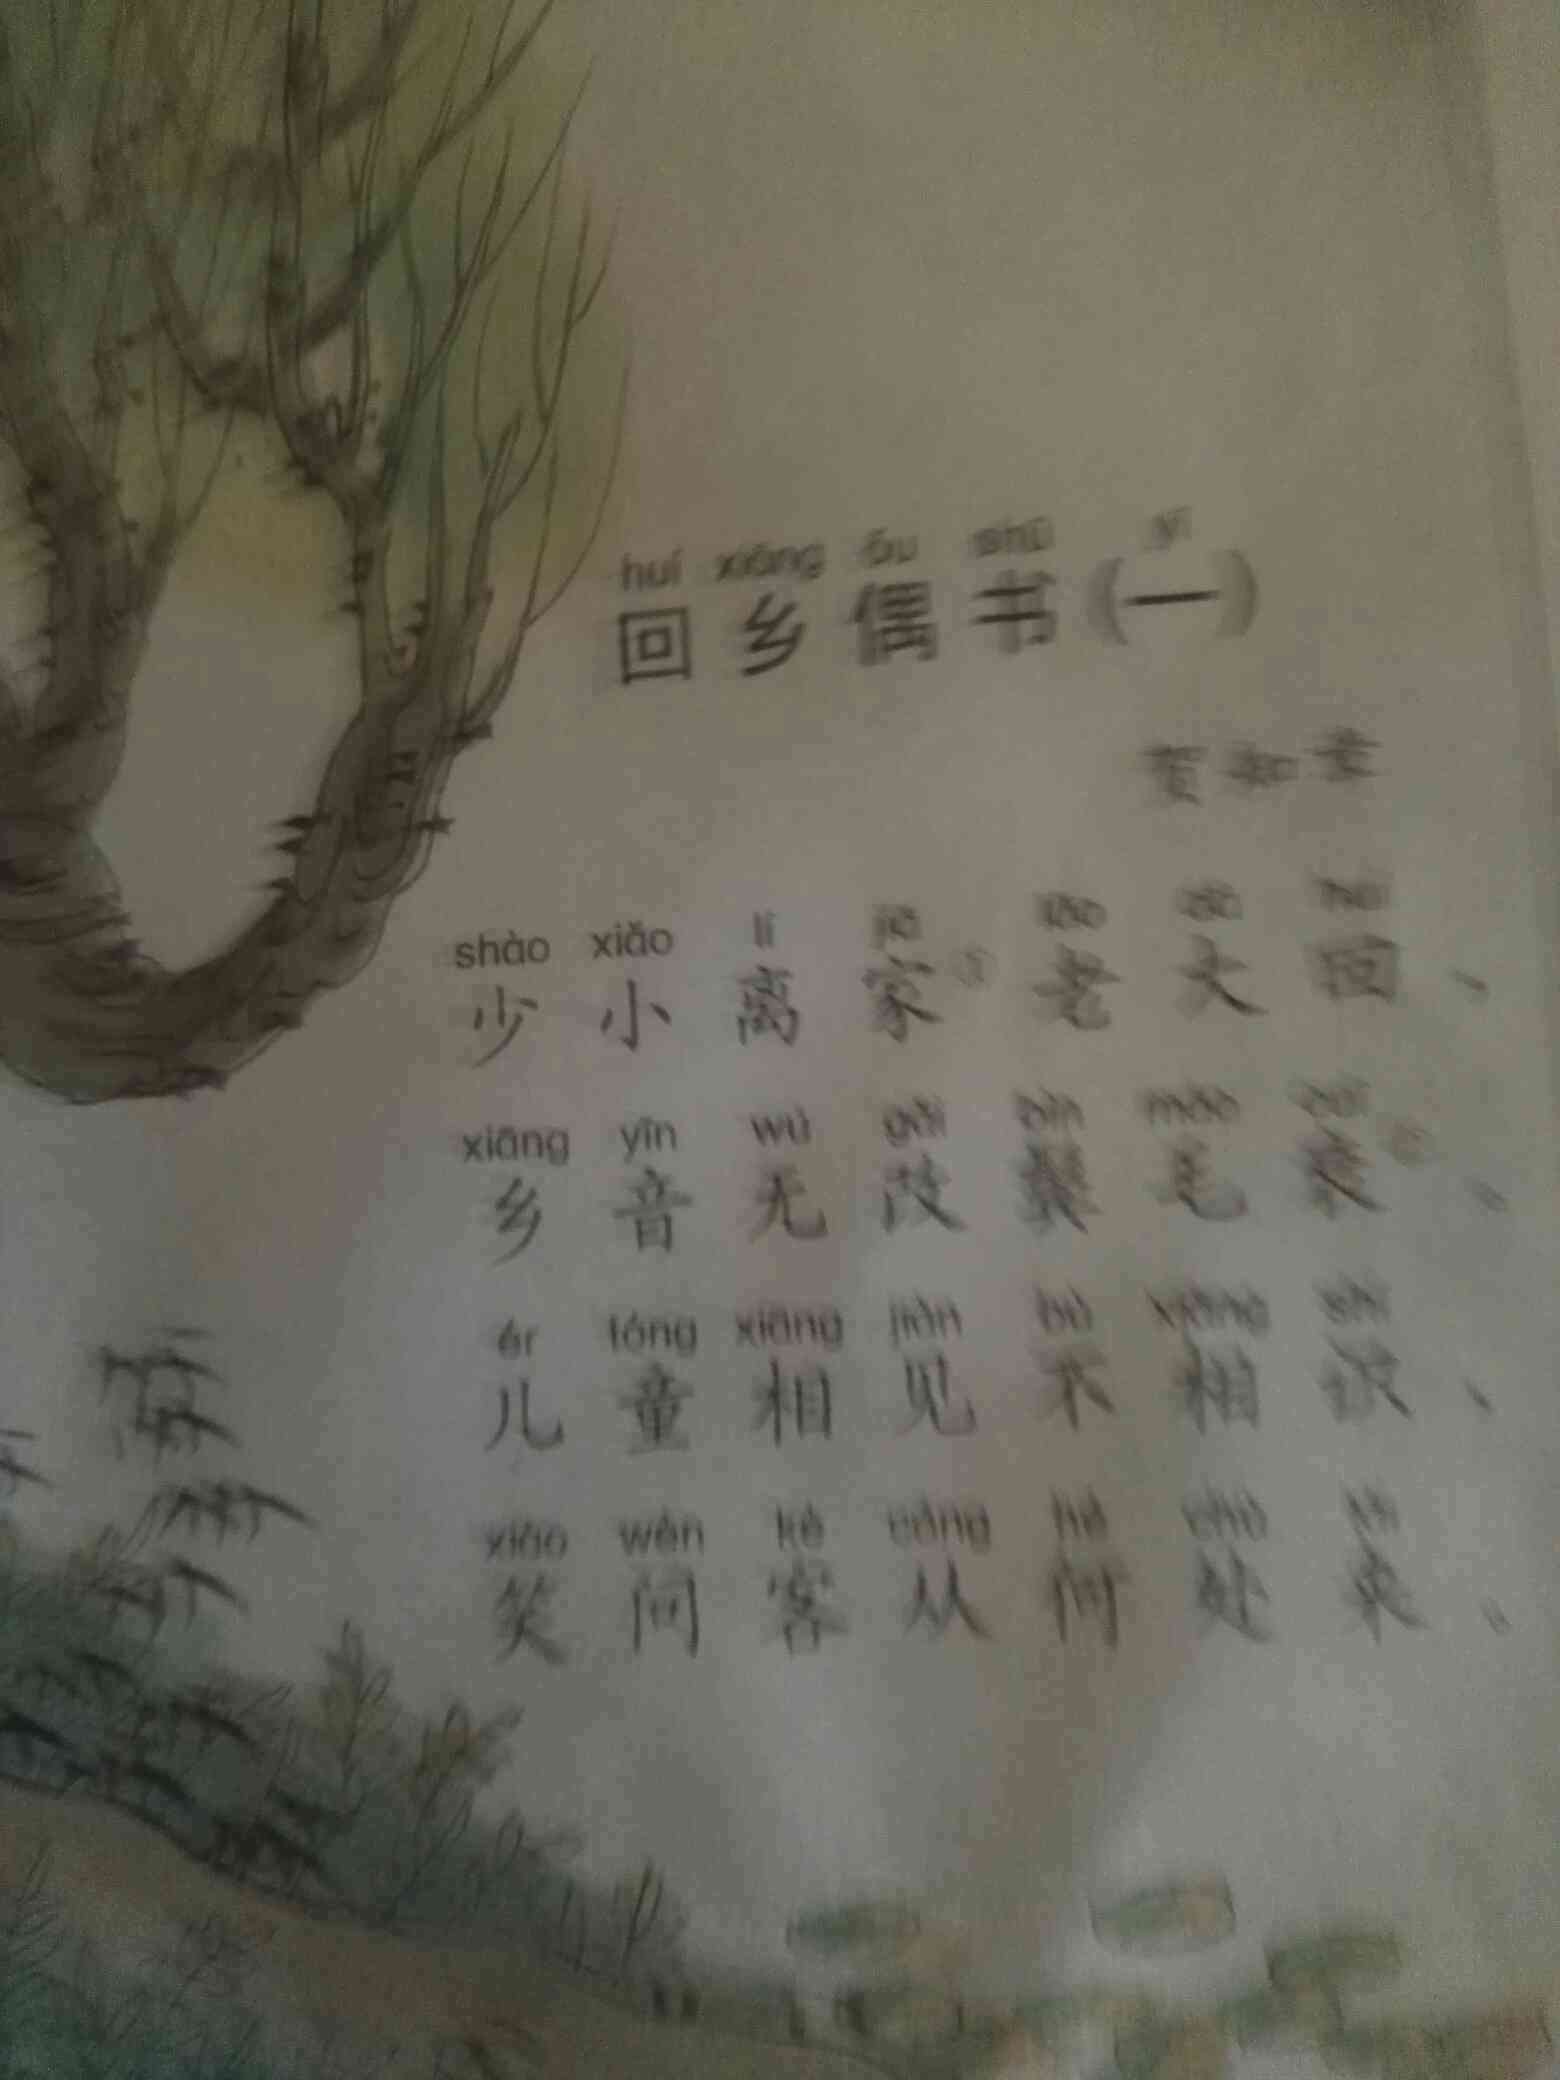 huí xiāng ǒu shū yī
回乡偶书(一)
贺知章
shào xiǎo lí jiā lǎo dà huí
少小离家①老大回，
xiāng yīn wú gǎi bìn máo cuī
乡音无改鬓毛衰②。
ér tóng xiāng jiàn bù xiāng shí
儿童相见不相识，
xiào wèn kè cóng hé chù lái
笑问客从何处来。